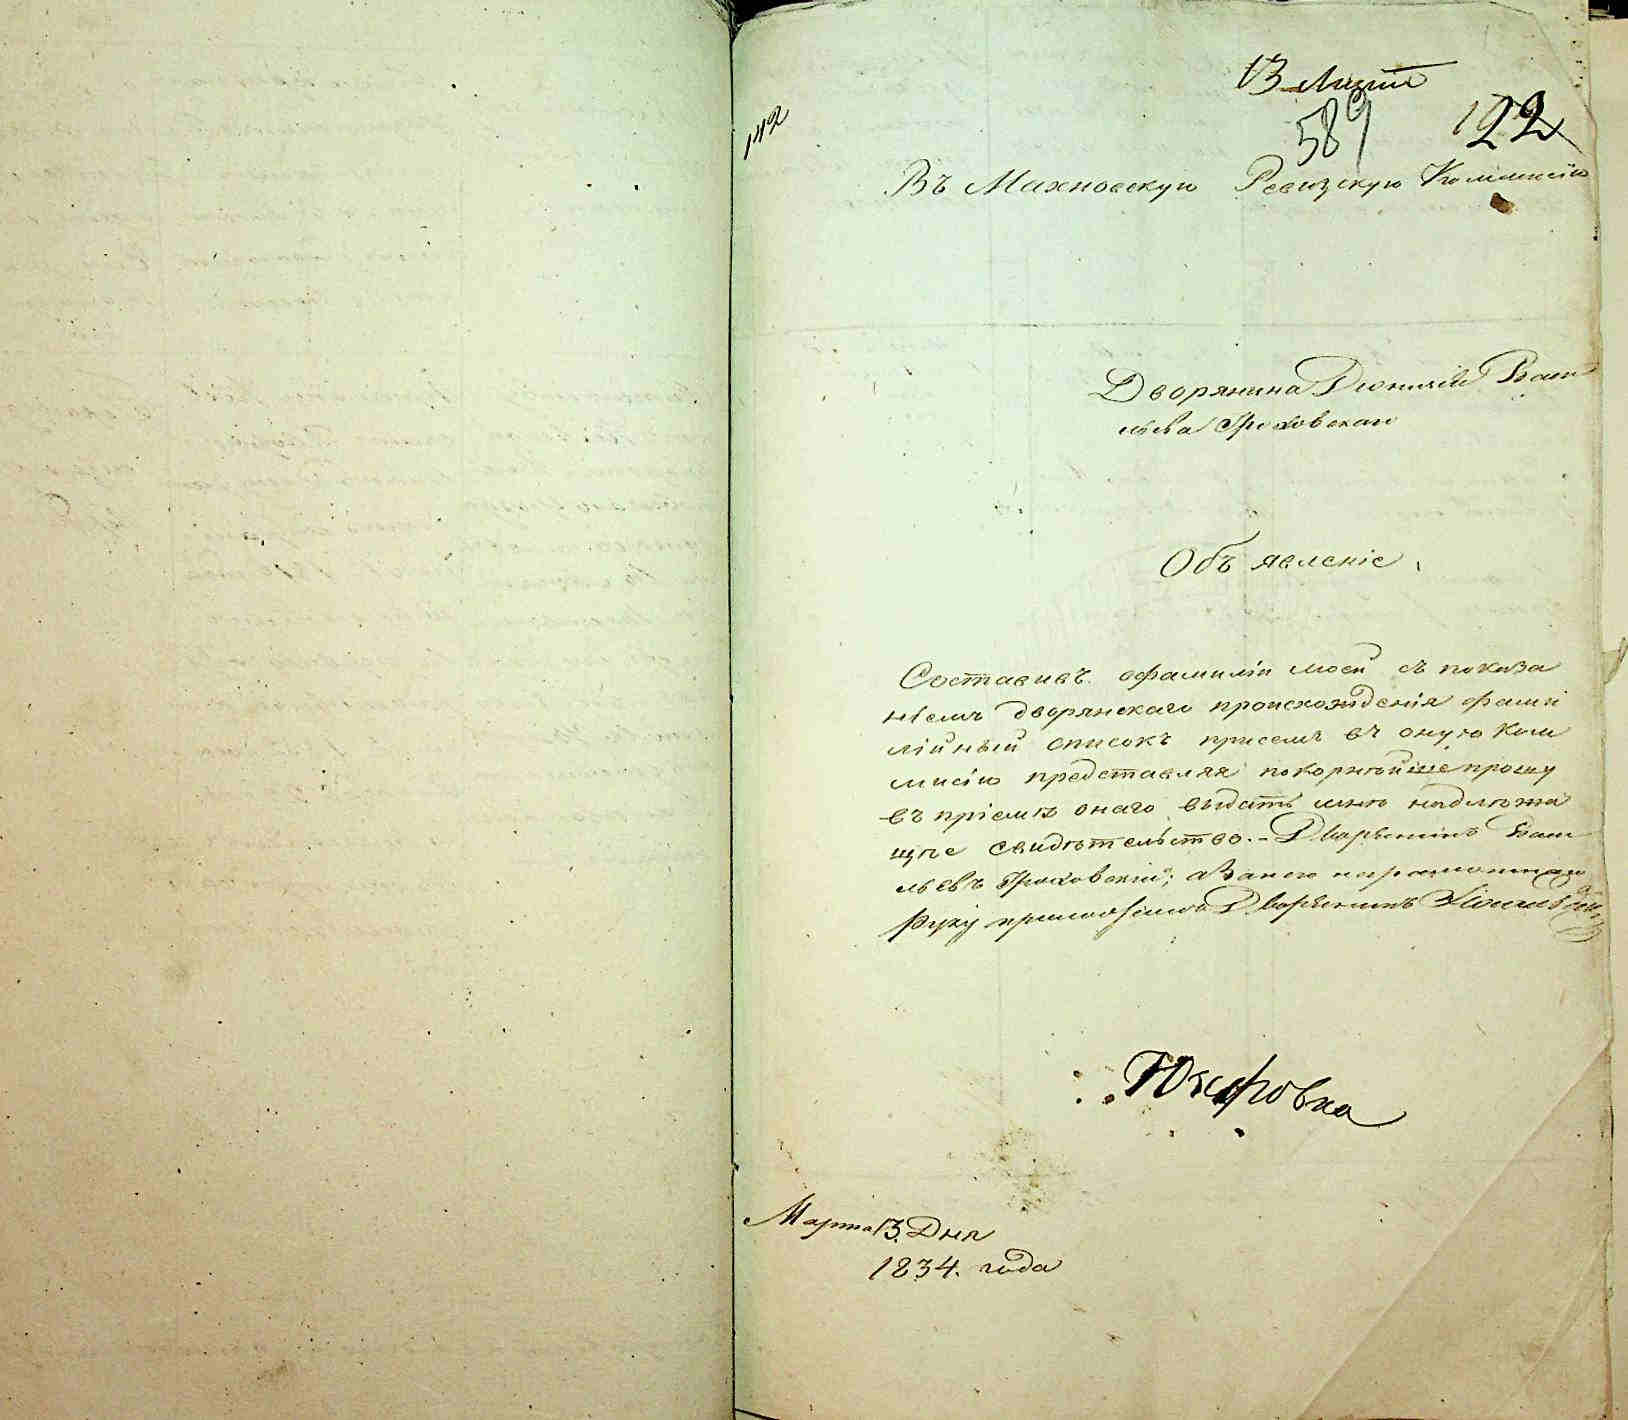 13 Марта
589
122
142
Въ Махновскую Ревизскую Коммисію
Дворянина Діонисія Васи
льева Гроховскаго
Объявленіе
Составивъ о фамиліи моей съ показа
ніемъ дворянскаго происхожденія фами
лійный списокъ присемъ въ оную Ком
мисію представляя покорнѣйше прошу
въ пріемѣ онаго выдать мнѣ надлежа
щѣе свидѣтельство. - Дворянинъ Васи
льевъ Гроховскій; а Занего неграмотнаго
Руку приложилъ Дворянинъ
Марта 13. Дня
1834. года